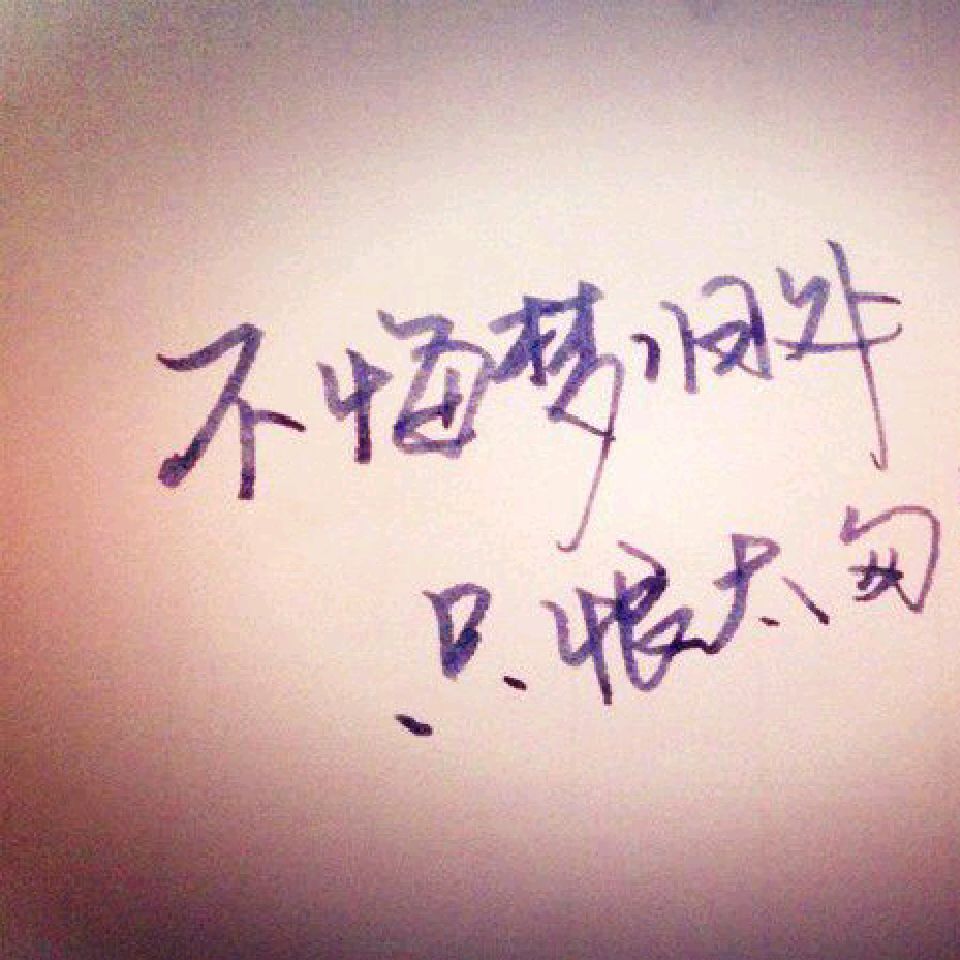 不悔梦归处
只恨太匆